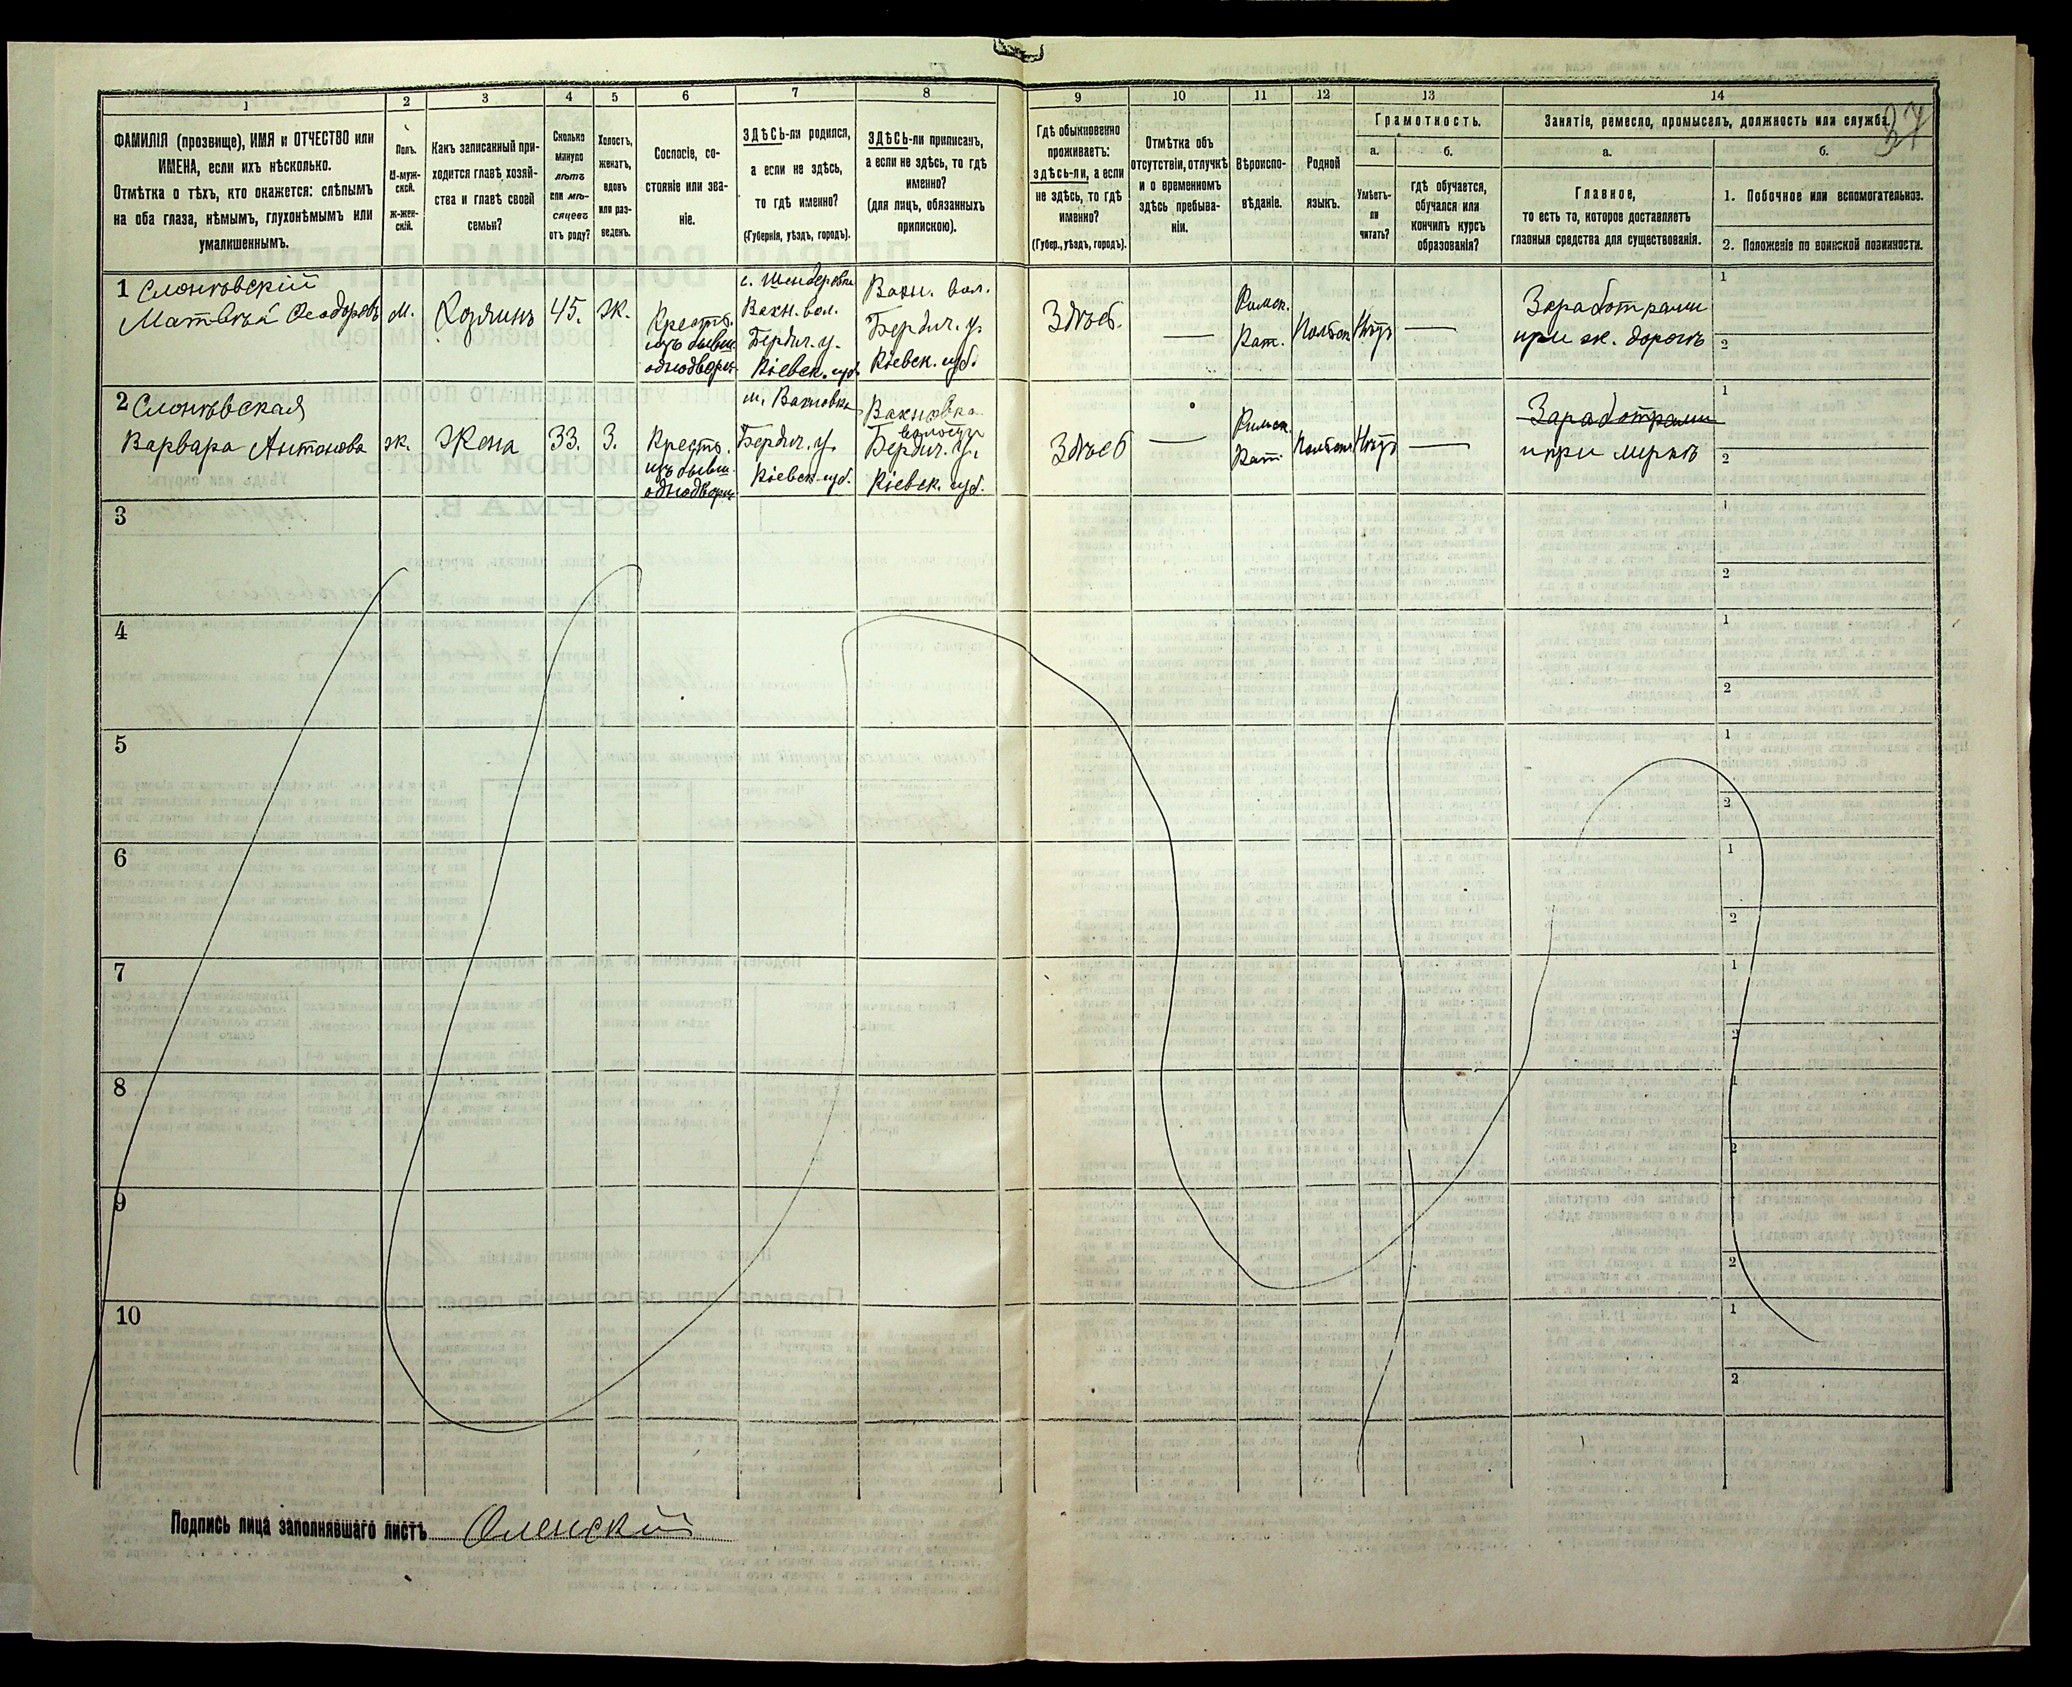 37
1 2 3 4 5 6 7 8 9 10 11 12 13 14
ФАМИЛІЯ (прозвище), ИМЯ и ОТЧЕСТВО или
ИМЕНА, если ихъ нѣсколько.
Отмѣтка о тѣхъ, кто окажется: слѣпымъ
на оба глаза, нѣмымъ, глухонѣмымъ или
умалишеннымъ.
Полъ.
М-муж-
ской.
ж-жен-
скій.
Какъ записанный при-
ходится главѣ хозяй-
ства и главѣ своей
семьи?
Сколько
минуло
лѣтъ
или мѣ-
сяцевъ
отъ роду?
Холостъ,
женатъ,
вдовъ
или раз-
веденъ.
Сословіе, со-
стояніе или зва-
ніе.
ЗДѢСЬ-ли родился,
а если не здѣсь,
то гдѣ именно?
(Губернія, уѣздъ, городъ).
ЗДѢСЬ-ли приписанъ,
а если не здѣсь, то гдѣ
именно?
(для лицъ, обязанныхъ
припискою).
Гдѣ обыкновенно
проживаетъ:
здѣсь-ли, а если
не здѣсь, то гдѣ
именно?
(Губер., уѣздъ, городъ).
Отмѣтка объ
отсутствіи, отлучкѣ
и о временномъ
здѣсь пребыва-
ніи.
Вѣроиспо-
вѣданіе.
Родной
языкъ.
Грамотность.
а.
Умѣетъ-
ли
читать?
б.
гдѣ обучается,
обучался или
кончилъ курсъ
образованія?
Занятіе, ремесло, промыселъ, должность или служба.
а.
Главное,
то есть то, которое доставляетъ
главныя средства для существованія.
б.
1. Побочное или вспомогательное.
2. Положеніе по воинской повинности.
1
Матвѣй Ѳеодоровъ
м.
Хозяинъ
45.
ж.
Крестъ.
изъ бывш.
однодворц.
Вахн. вол.
Бердич. у.
Кіевск. губ.
Вахн. вол.
Бердич. у.
Кіевск. губ.
Здѣсь.
—
Римск.
Кат.
Польск.
Нѣтъ
—
при ж. дорогѣ
1
2
2
Варвара Антонова
ж.
Жена
33.
З.
Крестъ.
изъ бывш.
однодворц.
м. Вахновка
Бердич. у.
Кіевск. губ.
Вахновка
волости
Бердич. у.
Кіевск. губ.
Здѣсь
—
Римск.
Кат.
Польск.
Нѣтъ
—
при мужѣ
1
2
3
1
2
4
1
2
5
1
2
6
1
2
7
1
2
8
1
2
9
1
2
10
1
2
Подпись лица заполнявшаго листъ